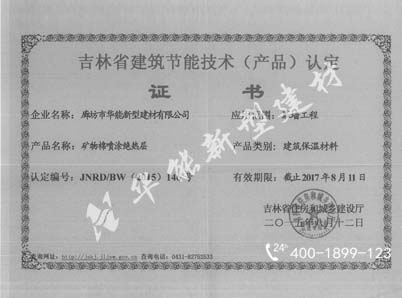 吉林省建筑节能技术（产品）认定
证 书
企业名称： 廊坊市华能新型建材有限公司 应用范围： 墙工程
产品名称： 矿物棉喷涂绝热层 产品类别： 建筑保温材料
认定编号： JNRD/BW 有效期限： 截止2017年8月11日
吉林省住房和城乡建设厅
二〇一五年八月十二日
查询网址：http://jskj.jljsw.gov.cn 查询电话：0431-82752533
华能新型建材
24h 400-1899-123